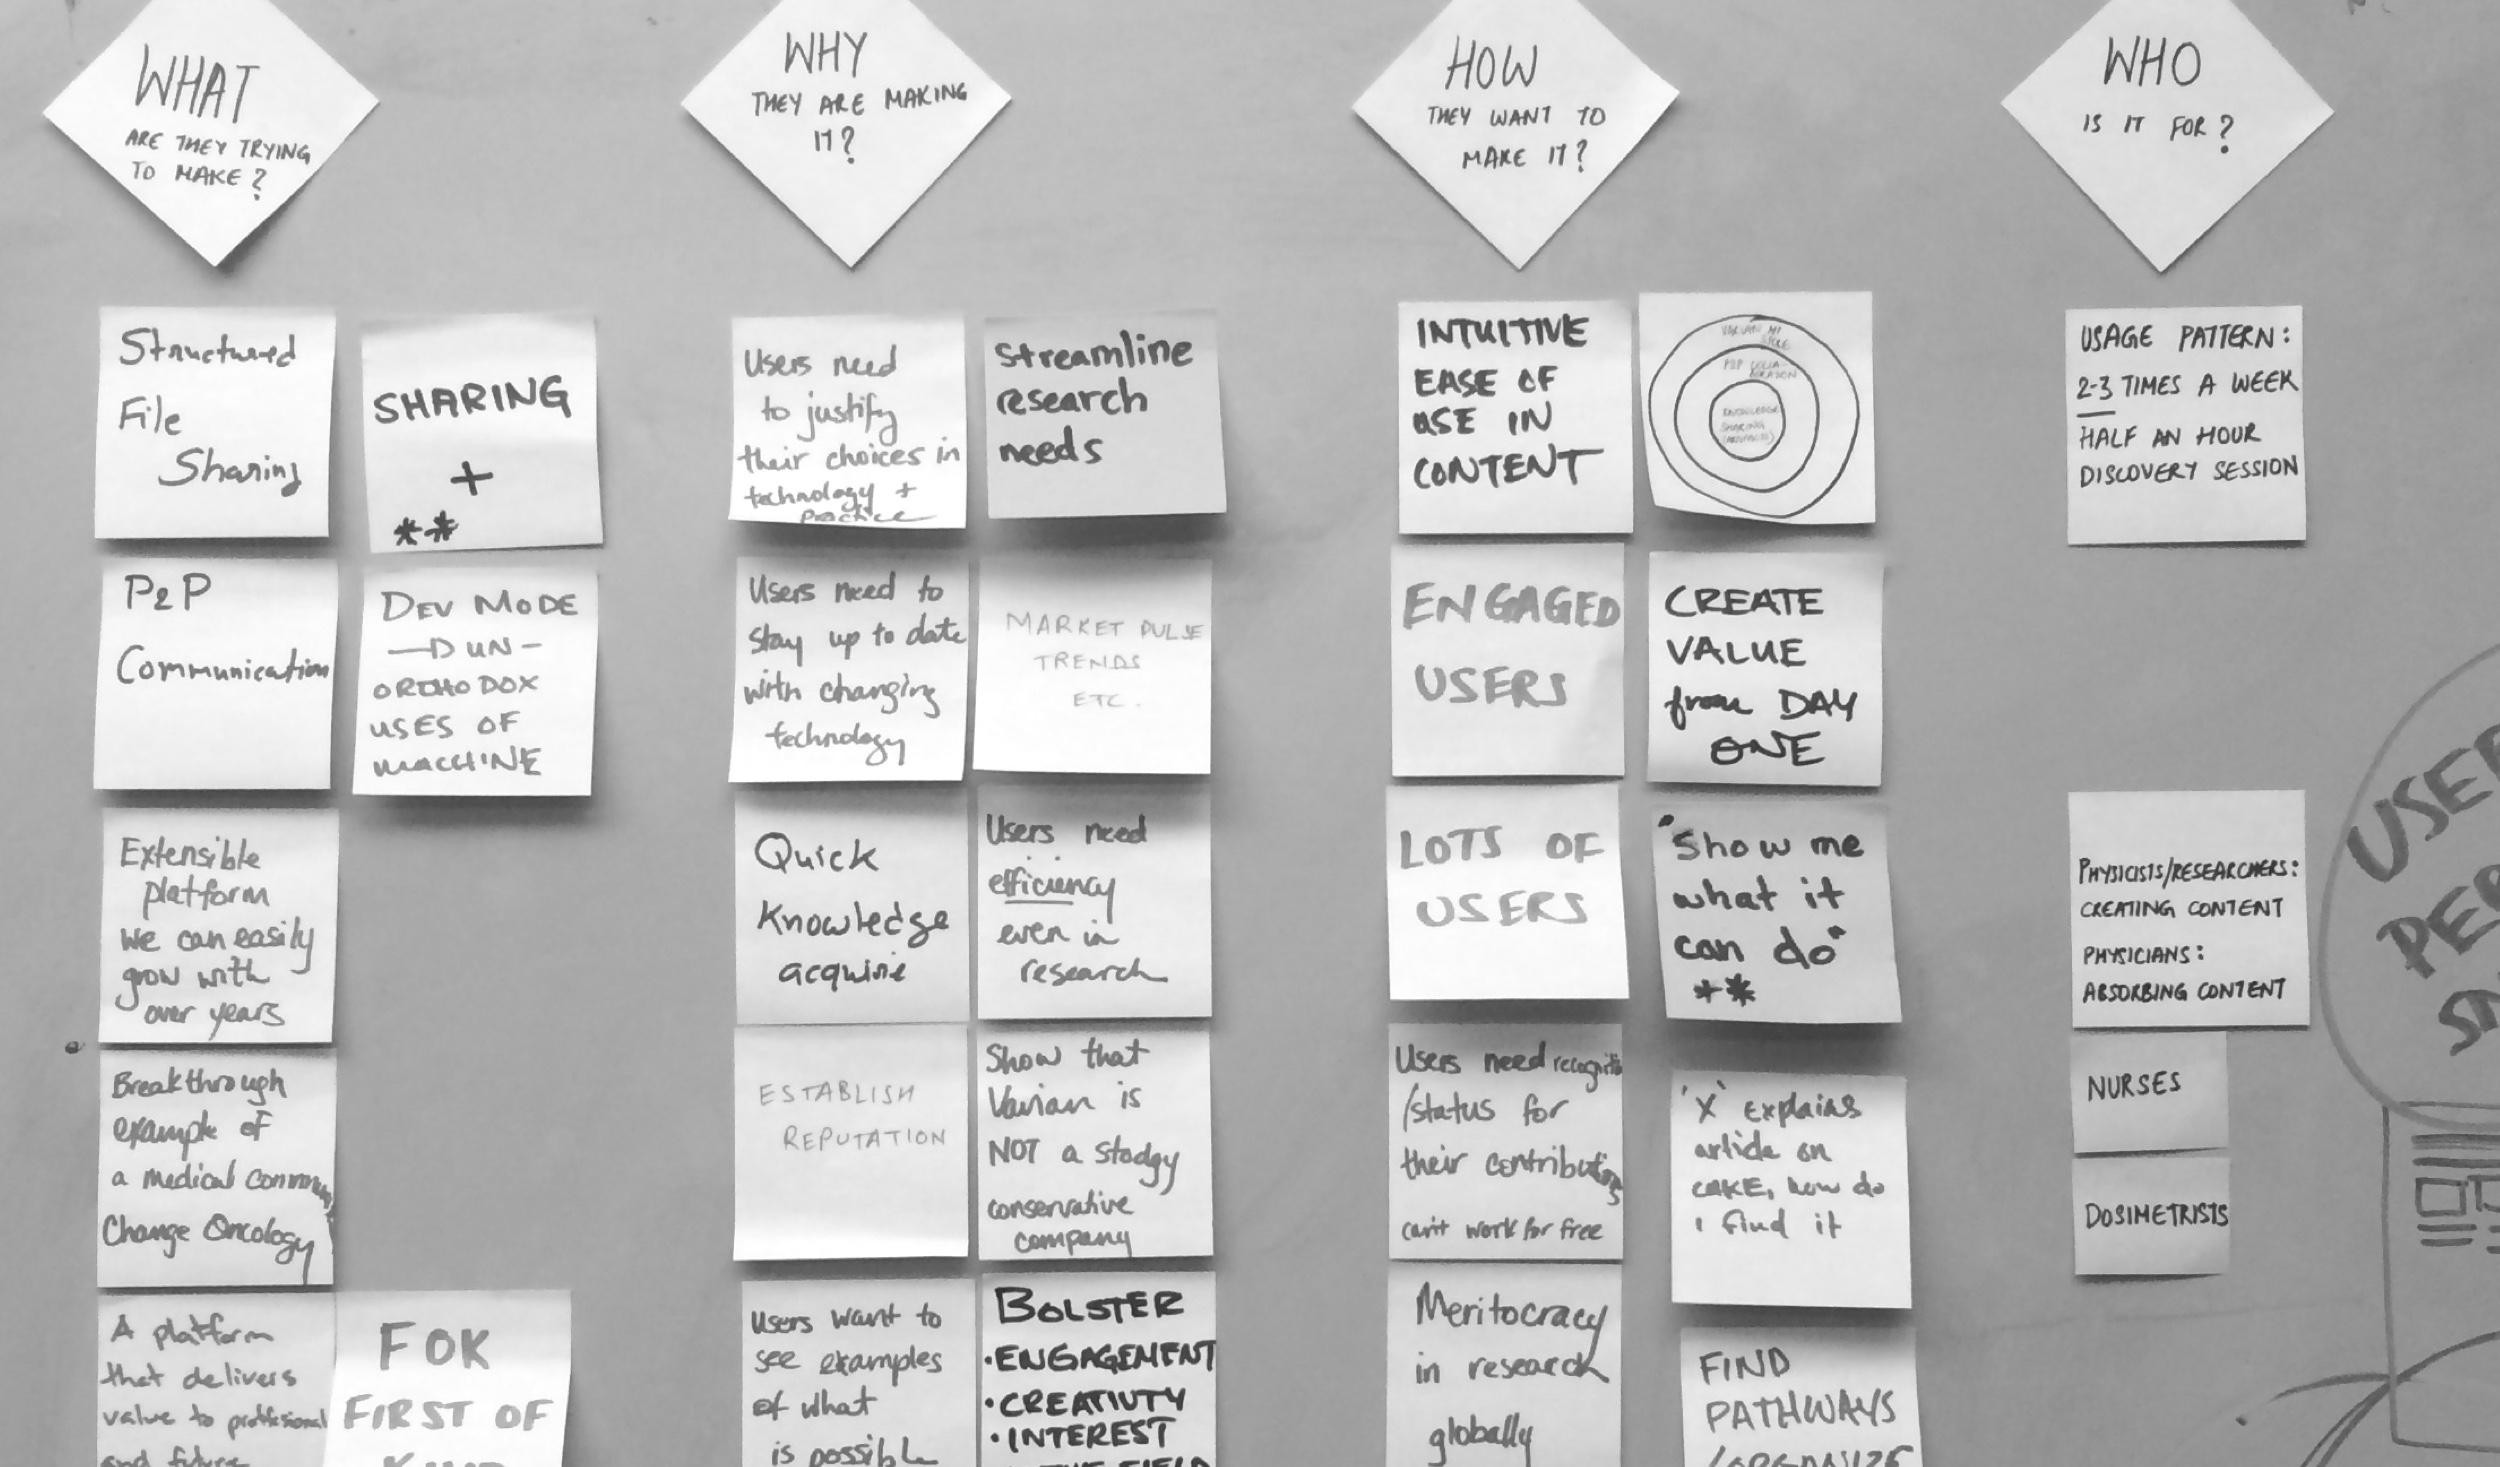 WHAT
ARE THEY TRYING
TO MAKE?
Structured
File
Sharing
SHARING
+
**
P2P
Communication
DEV MODE
UN-
ORTHODOX
USES OF
MACHINE
Extensible
platform
we can easily
grow with
over years
Breakthrough
example of
a medical
Change Oncology
A platform
that delivers
value to professional
and future
FOK
FIRST OF
KIND
WHY
THEY ARE MAKING
IT?
Users need
to justify
their choices in
technology +
practice
Streamline
research
needs
Users need to
stay up to date
with changing
technology
MARKET PULSE
TRENDS
ETC.
Quick
Knowledge
acquire
Users need
efficiency
even in
research
ESTABLISH
REPUTATION
Show that
Varian is
NOT a stodgy
conservative
company
Users want to
see examples
of what
is possible
BOLSTER
•ENGAGEMENT
•CREATIVITY
•INTEREST
IN THE FIELD
HOW
THEY WANT TO
MAKE IT?
INTUITIVE
EASE OF
USE IN
CONTENT
P2P
KNOWLEDGE
SHARING
ENGAGED
USERS
CREATE
VALUE
from DAY
ONE
LOTS OF
USERS
"Show me
what it
can do"
**
Users need
/status for
their contributions
can't work for free
'X' explains
article on
CAKE, how do
I find it
Meritocracy
in research
globally
FIND
PATHWAYS
/ORGANIZE
WHO
IS IT FOR?
USAGE PATTERN:
2-3 TIMES A WEEK
HALF AN HOUR
DISCOVERY SESSION
PHYSICISTS/RESEARCHERS:
CREATING CONTENT
PHYSICIANS:
ABSORBING CONTENT
NURSES
DOSIMETRISTS
USER
PER